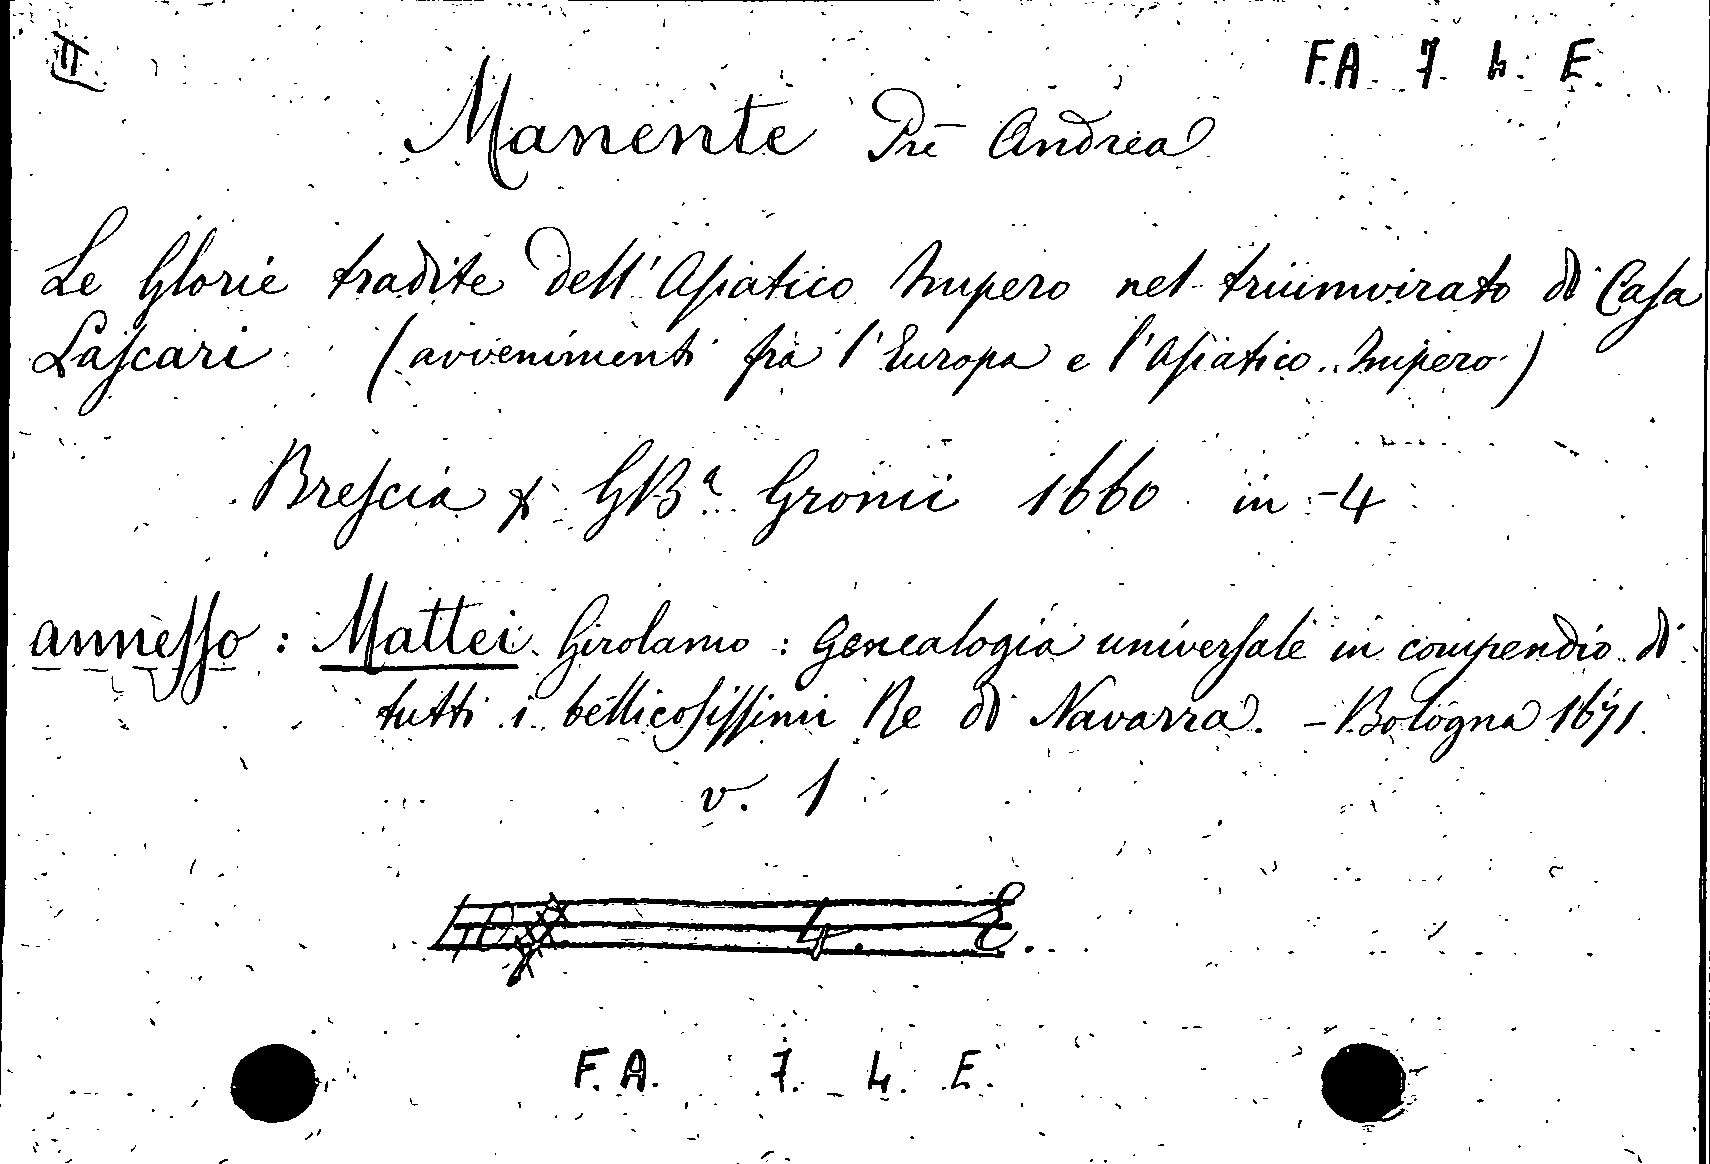 II
F.A. 7. 4. E.
Manente Prē Andrea
Le Glorie tradite dell'Asiatico Impero nel triumvirato di Casa
Lascari (avvenimenti fra l'Europa e l'Asiatico Impero)
Brescia x GBa Gromi 1660 in-4
annesso: Mattei Girolamo: Genealogia universale in compendio di
tutti i bellicosissimi Re di Navarra. - Bologna 1671
v. 1
4. E.
F.A. 7. 4. E.